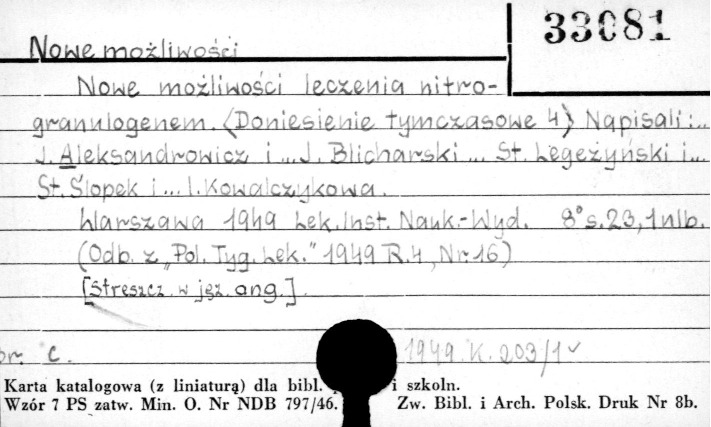 33081
Nowe możliwości
Nowe możliwości leczenia nitro-
granulogenem. (Doniesienie tymczasowe 4) Napisali:...
J. Aleksandrowicz i ... J. Blicharski ... St. Legeżyński i...
St. Ślopek i ... I. Kowalczykowa.
Warszawa 1949 Lek. Inst. Nauk.-Wyd. 8° s. 23, 1 nlb.
(Odb. z „Pol. Tyg. Lek." 1949 R. 4, Nr 16)
[Streszcz. w jęz. ang.].
br. c. 1949. K. 203/1
Karta katalogowa (z liniaturą) dla bibl. i szkoln.
Wzór 7 PS zatw. Min. O. Nr NDB 797/46. Zw. Bibl. i Arch. Polsk. Druk Nr 8b.